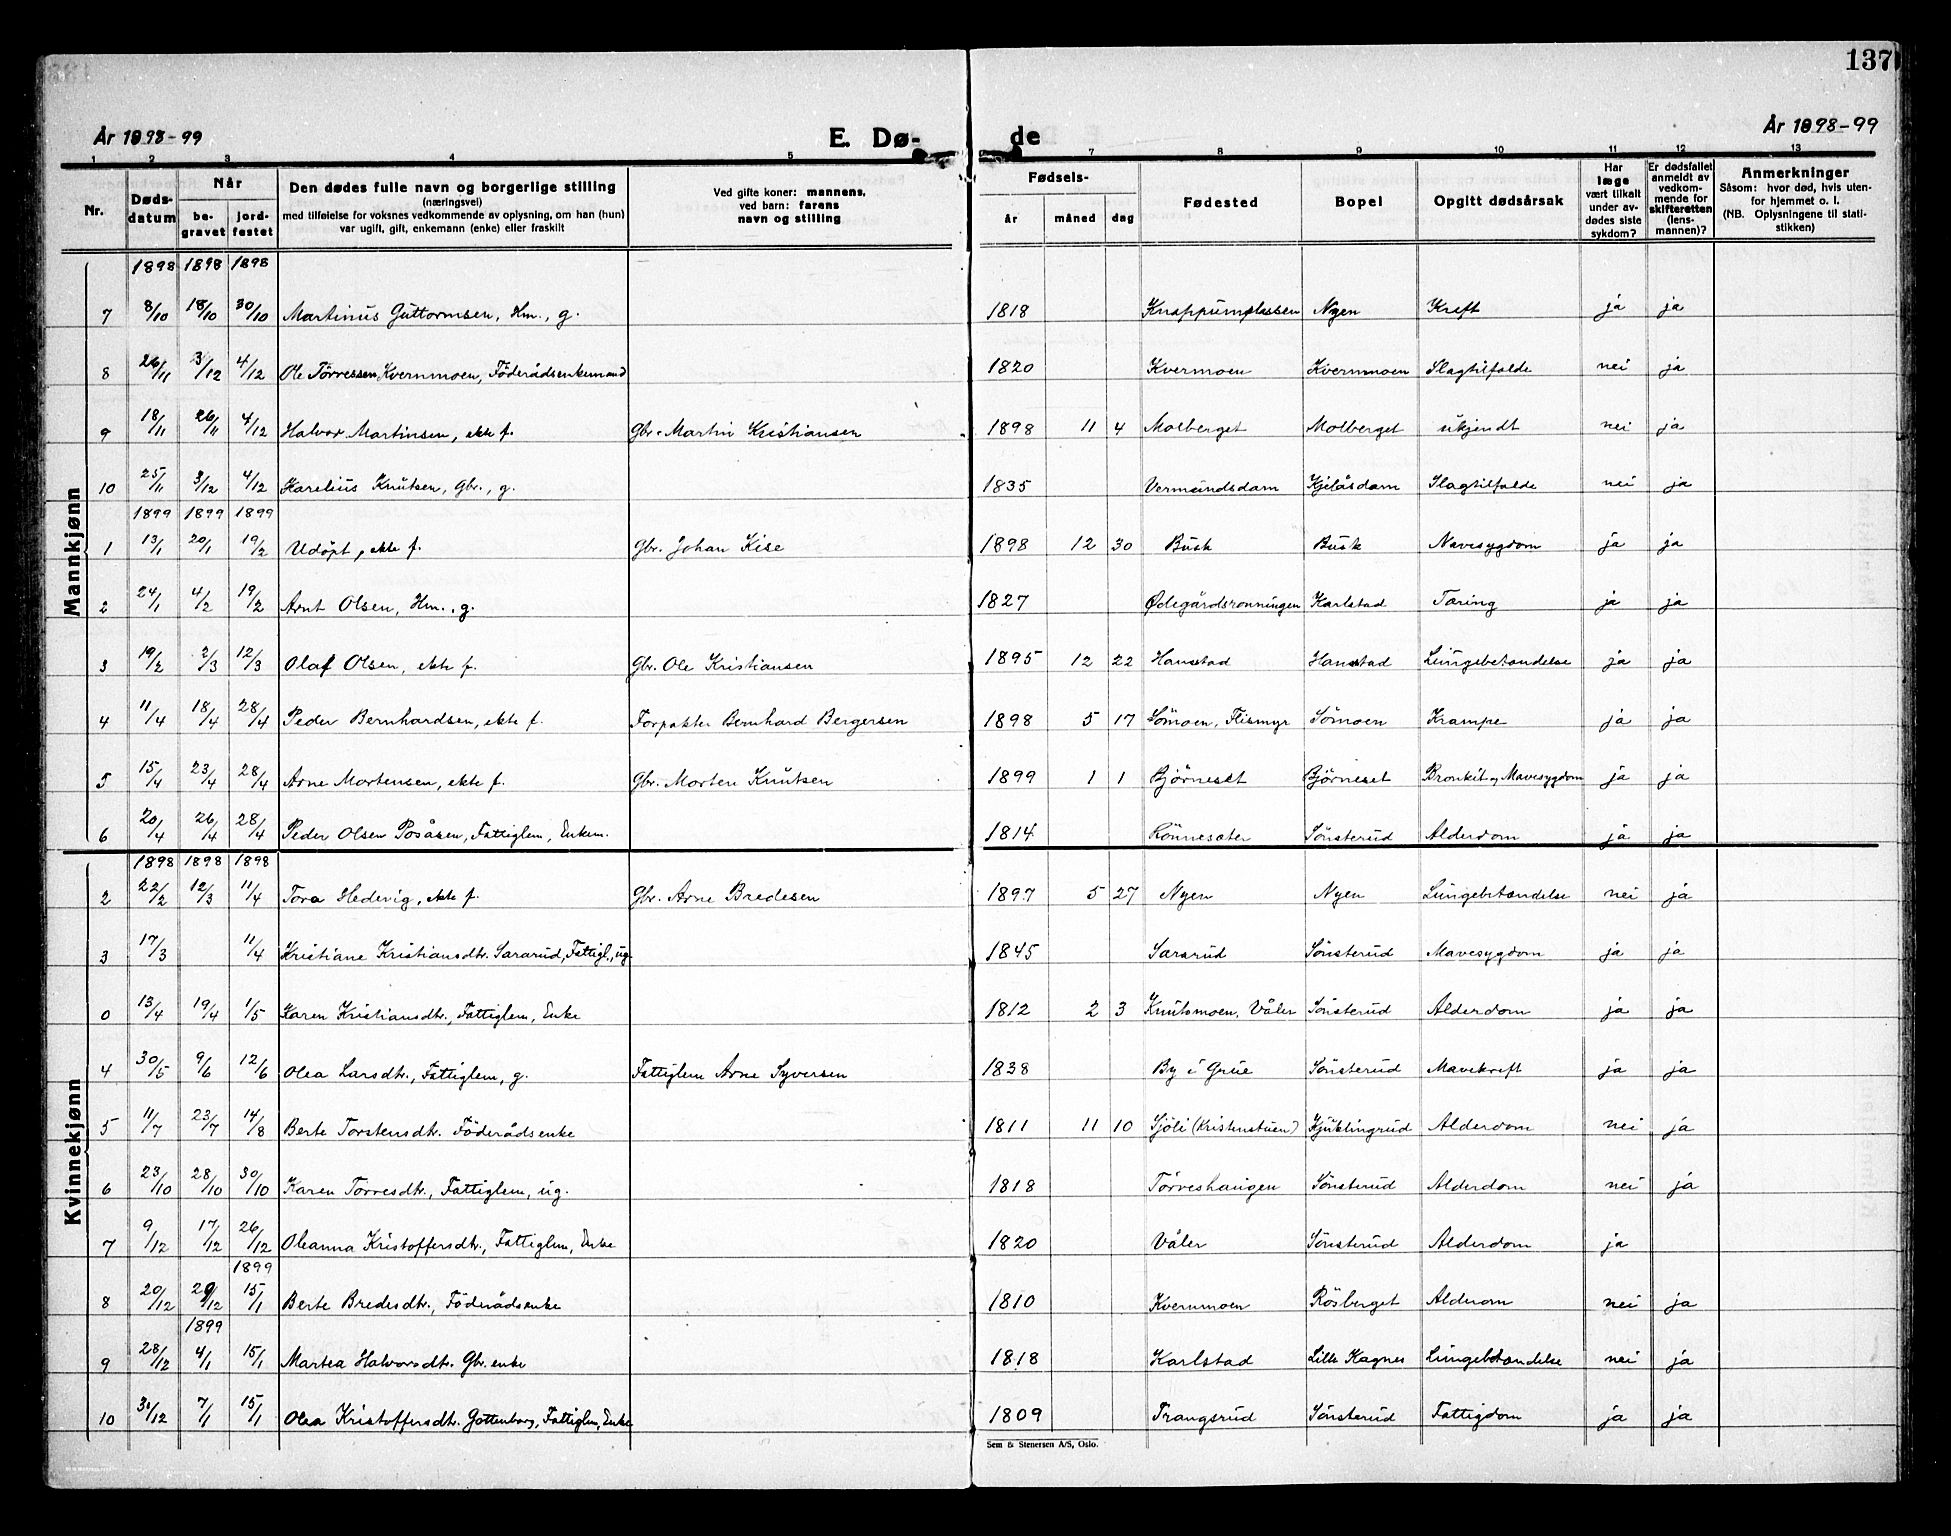 137
År 1898-99 E. Dø- de År 1898-99
1 2 3 4 5 7 8 9 10 11 12 13
Nr. Døds-datum Når be-gravet jord-festet Den dødes fulle navn og borgerlige stilling (næringsvei) med tilføielse for voksnes vedkommende av oplysning, om han (hun) var ugift, gift, enkemann (enke) eller fraskilt Ved gifte koner: mannens, ved barn: farens navn og stilling Fødsels- år måned dag Fødested Bopel Opgitt dødsårsak Har læge vært tilkalt under av-dødes siste sykdom? Er dødsfallet anmeldt av vedkom-mende for skifteretten (lens-mannen)? Anmerkninger Såsom: hvor død, hvis uten-for hjemmet o. l. (NB. Oplysningene til stati-stikken)
Mannkjønn
1898 1898 1898
7 8/10 18/10 30/10 Martinus Guttormsen, Hm., g. 1818 Knappumplassen Nyen Kreft ja ja
8 26/11 3/12 4/12 Ole Torressen Kvernmoen, Föderådsenkemand 1820 Kvermoen Kvernmoen Slagtilfalde nei ja
9 18/11 26/11 4/12 Halvor Martinsen, ekte f. Gbr. Martin Kristiansen 1898 11 4 Molberget Molberget ukjendt nei ja
10 25/11 3/12 4/12 Karelius Knutsen, Gbr., g. 1835 Vermundsdam Kjelåsdam Slagtilfalde nei ja
1899 1899 1899
1 13/1 20/1 19/2 Udöpt, ekte f. Gbr. Johan Kise 1898 12 30 Busk Busk Navesygdom ja ja
2 24/1 4/2 19/2 Arnt Olsen, Hm., g. 1827 Ødegårdsronningen Karlstad Taring ja ja
3 19/2 2/3 12/3 Olaf Olsen, ekte f. Gbr. Ole Kristiansen 1895 12 22 Hanstad Hanstad Lungebetandelse ja ja
4 11/4 18/4 28/4 Peder Bernhardsen, ekte f. Forpakter Bernhard Bergersen 1898 5 17 Sömoen, Flismyr Sömoen Krampe ja ja
5 15/4 23/4 28/4 Arne Mortensen, ekte f. Gbr. Morten Knutsen 1899 1 1 Björneset Björneset Bronkit og Mavesygdom ja ja
6 20/4 26/4 28/4 Peder Olsen Posåsen, Fattiglem, Enkem. 1814 Rönnesater Sönsterud Alderdom ja ja
Kvinnekjønn
1898 1898 1898
2 22/2 12/3 11/4 Tora Hedevig, ekte f. Gbr. Arne Bredesen 1897 5 27 Nyen Nyen Lungebetandelse nei ja
3 17/3 11/4 Kristiane Kristiansdtr. Sararud, Fattigl., ug. 1845 Sararud Sönsterud Mavesygdom ja ja
0 13/4 19/4 1/5 Karen Kristiansdtr., Fattiglem, Enke 1812 2 3 Knutsmoen, Våler Sönsterud Alderdom ja ja
4 30/5 9/6 12/6 Olea Larsdtr., Fattiglem, g. Fattiglem Arne Syversen 1838 By i Grue Sönsterud Mavekreft ja ja
5 11/7 23/7 14/8 Berte Torstensdtr. Föderådsenke 1811 11 10 Sjöli (Kristenstuen) Kjuklingrud Alderdom nei ja
6 23/10 28/10 30/10 Karen Torresdtr., Fattiglem, ug. 1818 Törreshaugen Sönsterud Alderdom nei ja
7 9/12 17/12 26/12 Oleanna Kristoffersdtr., Fattiglem, Enke 1820 Våler Sönsterud Alderdom ja
1899
8 20/12 29/12 15/1 Berte Bredesdtr., Föderådsenke 1810 Kvernmoen Rösberget Alderom nei ja
1899
9 28/12 4/1 15/1 Martea Halvorsdtr. Gbr. enke 1818 Karlstad Lille Kagnes Lungebetandelse nei ja
10 31/12 7/1 15/1 Olea Kristoffersdtr. Gottenborg, Fattiglem, Enke 1809 Trangsrud Sönsterud Fattigdom ja ja
Sem & Stenersen A/S, Oslo.